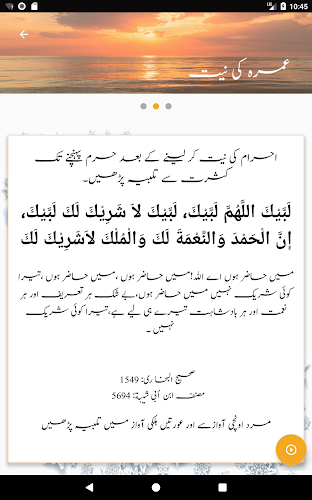 10:45
عمرہ کی نیت
احرام کی نیت کر لینے کے بعد حرم پہنچنے تک
کثرت سے تلبیہ پڑھیں۔
لَبَّيْكَ اللَّهُمَّ لَبَّيْكَ، لَبَّيْكَ لاَ شَرِيْكَ لَكَ لَبَّيْكَ،
إِنَّ الْحَمْدَ وَالنِّعْمَةَ لَكَ وَالْمُلْكَ لاَشَرِيْكَ لَكَ
میں حاضر ہوں اے اللہ! میں حاضر ہوں، میں حاضر ہوں، تیرا
کوئی شریک نہیں میں حاضر ہوں، بے شک ہر تعریف اور ہر
نعمت اور ہر بادشاہت تیرے ہی لیے ہے، تیرا کوئی شریک
نہیں۔
صحیح البخاری: 1549
مصنف ابن أبي شيبة: 5694
مرد اونچی آواز سے اور عورتیں ہلکی آواز میں تلبیہ پڑھیں